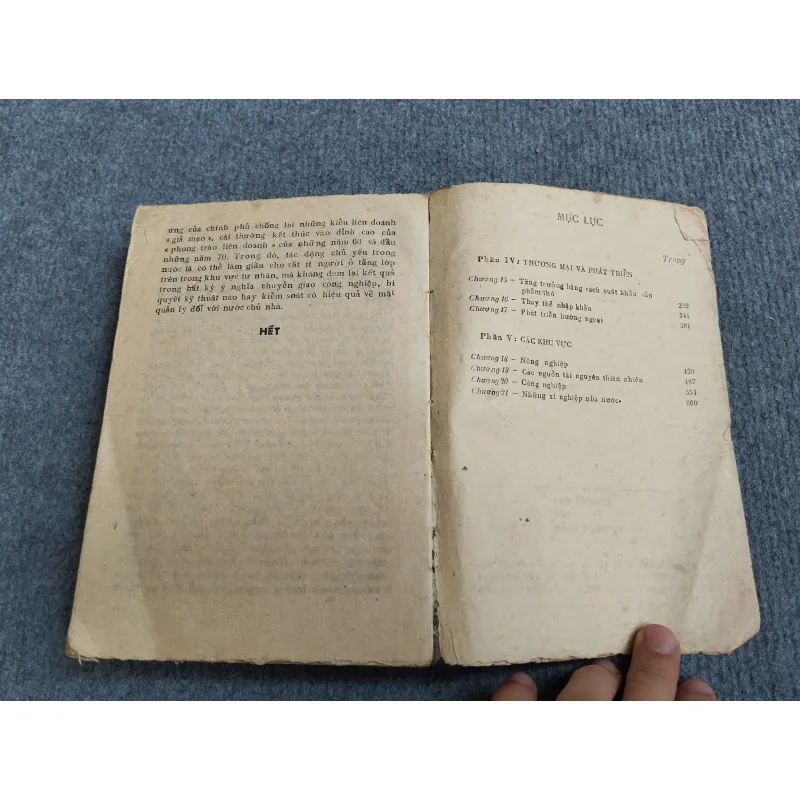 ứng của chính phủ chống lại những kiểu liên doanh
« giả mạo », cái thường kết thúc vào đỉnh cao của
« phong trào liên doanh » của những năm 60 và đầu
những năm 70. Trong đó, tác động chủ yếu trong
nước là có thể làm giầu cho rất ít người ở tầng lớp
trên trong khu vực tư nhân, mà không đem lại kết quả
trong bất kỳ ý nghĩa chuyển giao công nghiệp, bí
quyết kỹ thuật nào hay kiểm soát có hiệu quả về mặt
quản lý đối với nước chủ nhà.
HẾT
MỤC LỤC
Trang
Phần IV: THƯƠNG MẠI VÀ PHÁT TRIỂN
Chương 15 – Tăng trưởng bằng cách xuất khẩu sản
phẩm thô 203
Chương 16 – Thay thế nhập khẩu 244
Chương 17 – Phát triển hướng ngoại 281
Phần V: CÁC KHU VỰC
Chương 18 – Nông nghiệp 420
Chương 19 – Các nguồn tài nguyên thiên nhiên 487
Chương 20 – Công nghiệp 551
Chương 21 – Những xí nghiệp nhà nước. 600